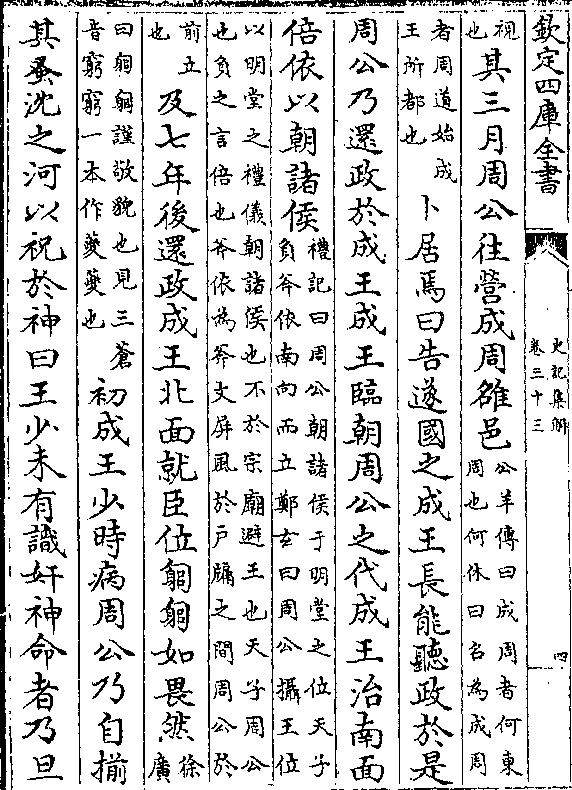 欽定四庫全書
史記集解
卷三十三
四
視
也
其三月周公往營成周雒邑
公羊傳曰成周者何東
周也何休曰名為成周
者周道始成
王所都也
卜居焉曰告遂國之成王長能聽政於是
周公乃還政於成王成王臨朝周公之代成王治南面
倍依以朝諸侯
禮記曰周公朝諸侯于明堂之位天子
負斧依南向而立鄭玄曰周公攝王位
以明堂之禮儀朝諸侯也不於宗廟避王也天子周公
也負之言倍也斧依為斧文屏風於戶牖之間周公於
前立
也
及七年後還政成王北面就臣位匔匔如畏然
徐
廣
曰匔匔謹敬貌也見三蒼
音窮窮一本作夔夔也
初成王少時病周公乃自揃
其蚤沈之河以祝於神曰王少未有識奸神命者乃旦